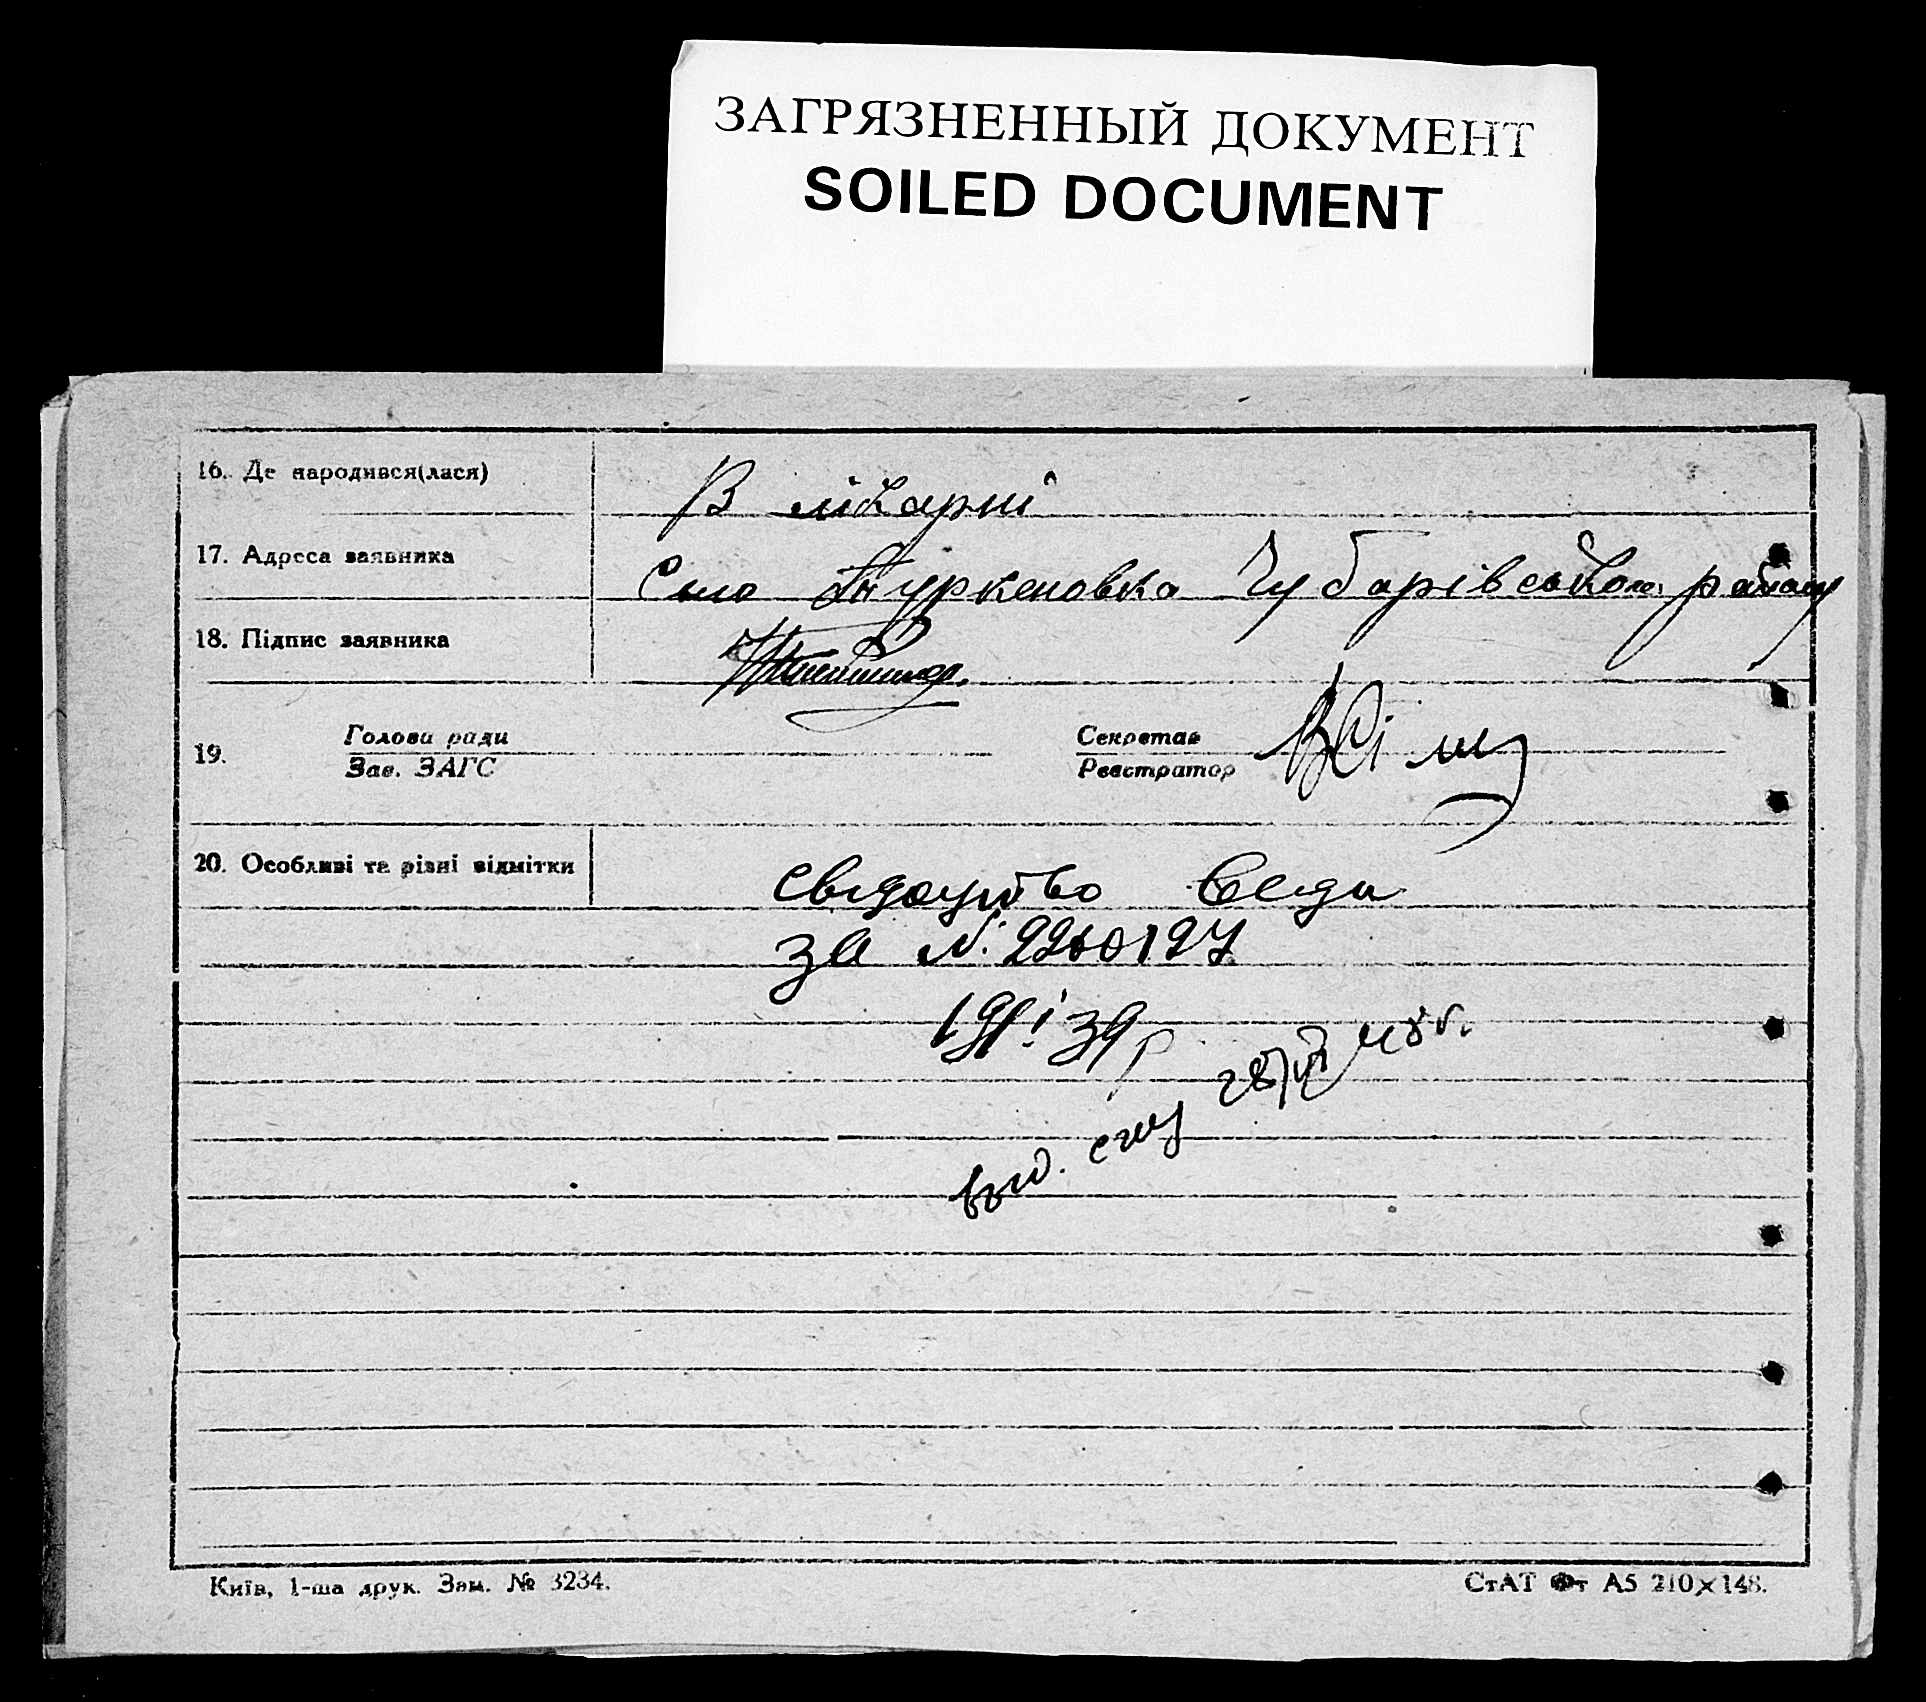 ЗАГРЯЗНЕННЫЙ ДОКУМЕНТ
SOILED DOCUMENT
16. Де народився(лася)
В лікарні
17. Адреса заявника
Село Туркеновка Чубарівського району
18. Підпис заявника
19.
Голова ради
Зав. ЗАГС
Секретар
Реєстратор
20. Особливі та різні відмітки
свідоцтво
за №. 2260127
39р
Київ, 1-ша друк. Зам. № 3234.
СтАТ Фт А5 210×148.